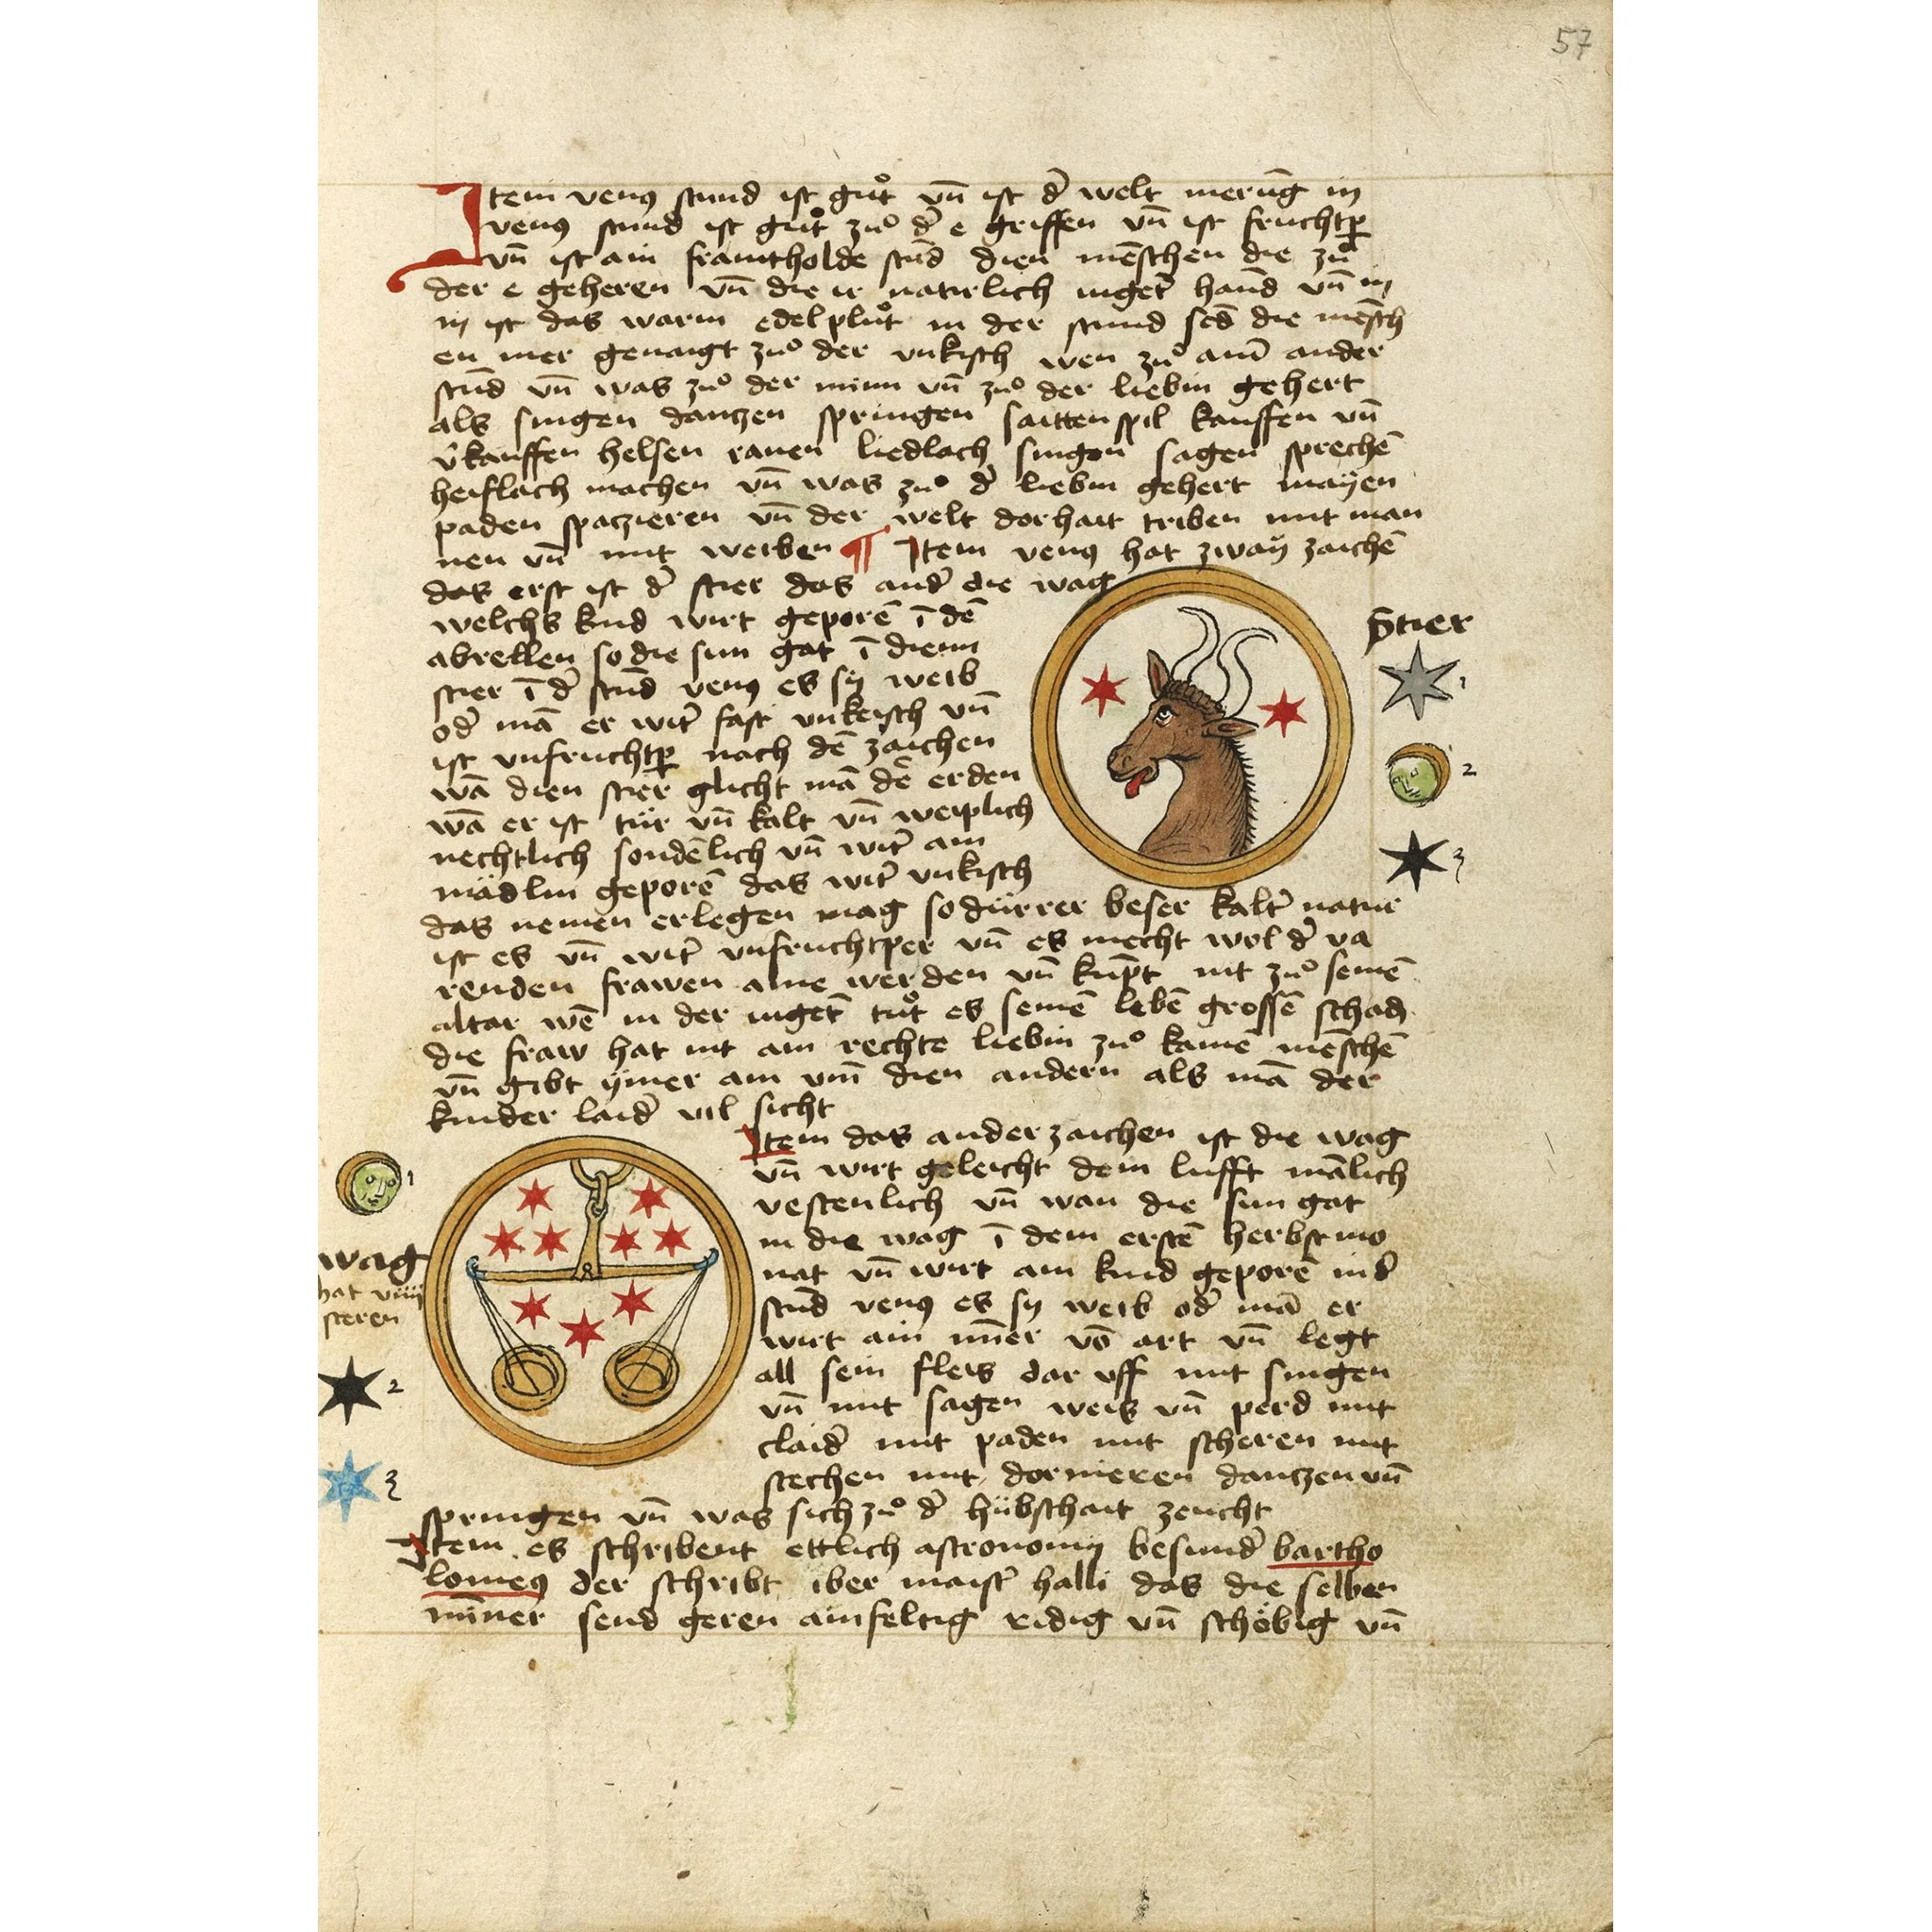 57
Item venꝰ stund ist guͦt vn̄ ist d̄ welt merūg in
venꝰ stund ist guͦt zuͦ d̄ e griffen vn̄ ist fruchtp̲
vn̄ ist ain stūd dien mēschen die zuͦ
der e geheren vn̄ die ir natirlich inget̄ hānd vn̄ in
in ist das warm edel pluͦt in der stund sēd die mēsch
en mer genaigt zuͦ der vnkisch wen zuͦ ainr̄ ander
stūd vn̄ was zuͦ der minn vn̄ zuͦ der liebin gehert
als singen dantzen springen saittenspil kauffen vn̄
v̄kauffen helsen rauen liedlach singen sagen sprechē
heislach machen vn̄ was zuͦ d̄ liebin gehert mayen
paden spatzieren vn̄ der welt dorhait triben mit man
nen vn̄ mit weiben ¶ Item venꝰ hat zway zaichē
das erst ist d̄ stier das and̄ die wag
welchs kind wirt geporē ī dē
abrellen so die sun gat ī dienn
stier ī d̄ stūd venꝰ es sy weib
od̄ mā er wirt̄ fast vnkeisch vn̄
ist vnfruchtp̲ nach dē zaichen
wā dien stier glicht mā dē erden
wā er ist tür vn̄ kalt vn̄ weiplich
nechtlich sondēlich vn̄ wirt̄ ain
mädlin geporē das wirt̄ vnkisch
das nemen erlegen mag so dürrer beser kalt̄ natur
ist es vn̄ wirt̄ vnfruchtper vn̄ es mecht wol d̄ va
renden frawen aine werden vn̄ kūpt nit zuͦ seinē
altar wē in der inget̄ tuͦt es seinē lebē grossē schad
die fraw hat nit ain rechte liebin zuͦ kainē mēschē
vn̄ gibt ymer ain vm̄ dien andern als mā der
kinder laid̄ vil sicht
Stier
1
2
3
Item das ander zaichen ist die wag
vn̄ wirt geleicht dem lufft mālich
vestenlich vn̄ wan die sun gat
in die wag ī dem erstē herbst mo
nat vn̄ wirt ain kind geporē in d̄
stūd venꝰ es sy weib od̄ mā er
wirt ain mīner vō art vn̄ legt
all sein fleis dar vff mit singen
vn̄ mit sagen weis vn̄ perd mit
claid̄ mit paden mit scheren mit
stechen mit dornieren dantzen vn̄
springen vn̄ was sich zuͦ d̄ hübschait zeucht
1
wag
hat viiij
steren
2
3
Item es schribent ettlich astronomy besund̄ bartho
lomeꝰ der schribt iber maist̄ halli das die selben
mīner send geren ainfeltig ridig vn̄ schöbig vn̄